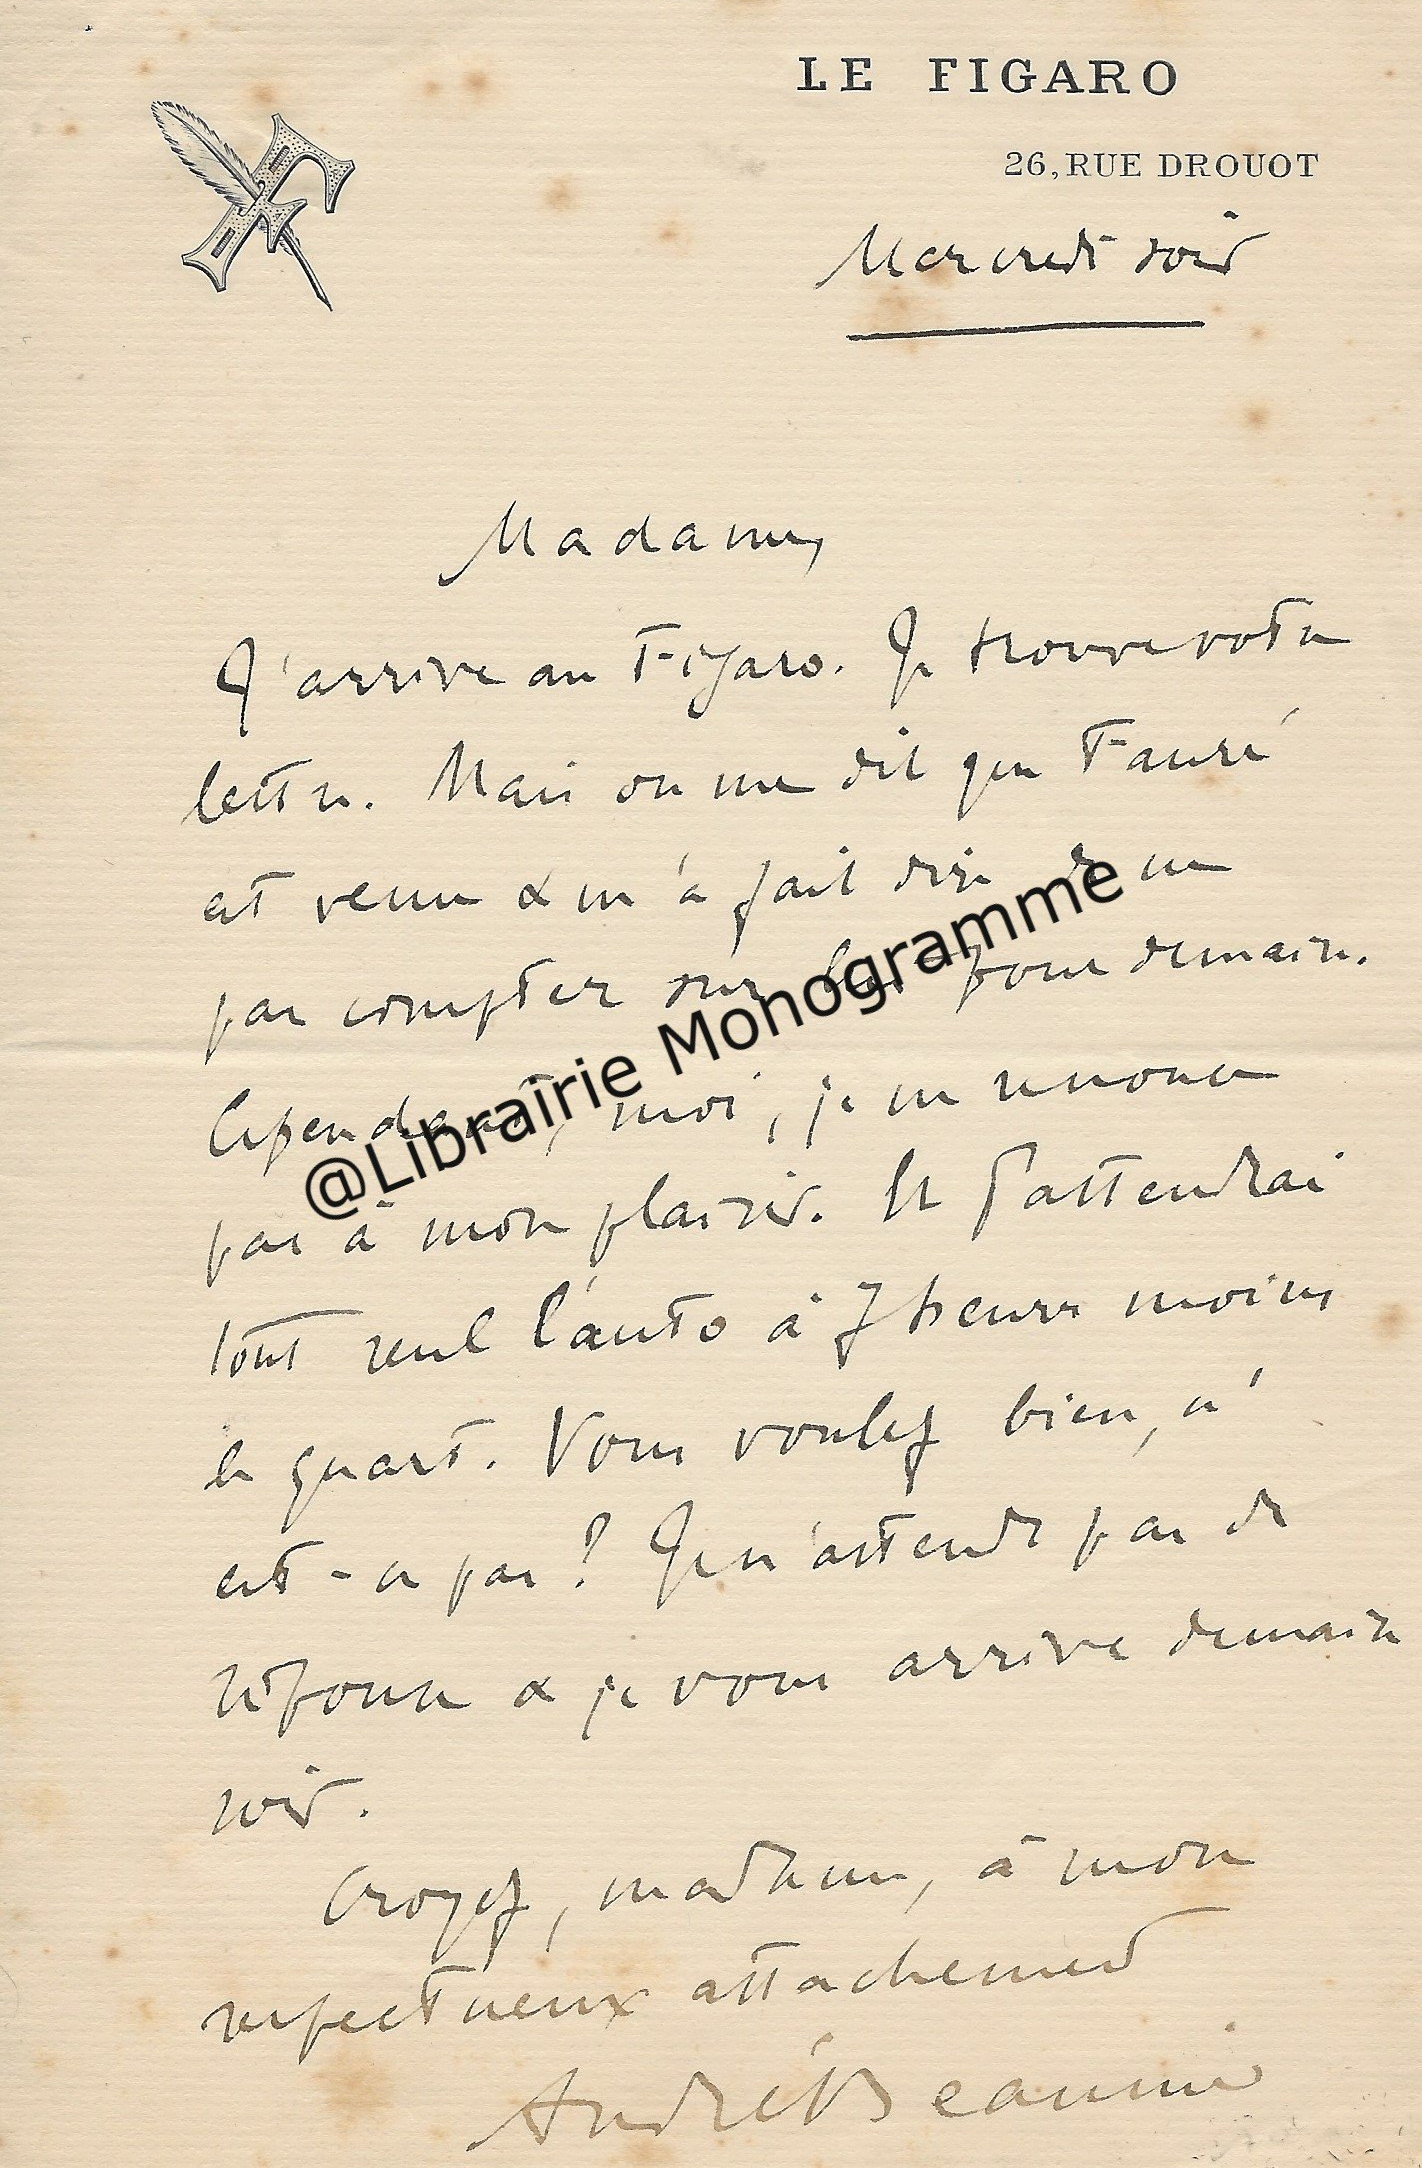 LE FIGARO
26, RUE DROUOT
Mercredi soir
Madame,
J'arrive au Figaro. Je trouve votre
lettre. Mais on me dit que Fauré
est venu & m'a fait dire de ne
pas compter sur lui pour demain.
Cependant, moi, je ne renonce
pas à mon plaisir. Et j'attendrai
tout seul l'auto à 7 heures moins
le quart. Vous voulez bien, n'
est-ce pas ? Je n'attends pas de
réponse & je vous arrive demain
soir.
Croyez, madame, à mon
respectueux attachement
André Beaunier
@Librairie Monogramme